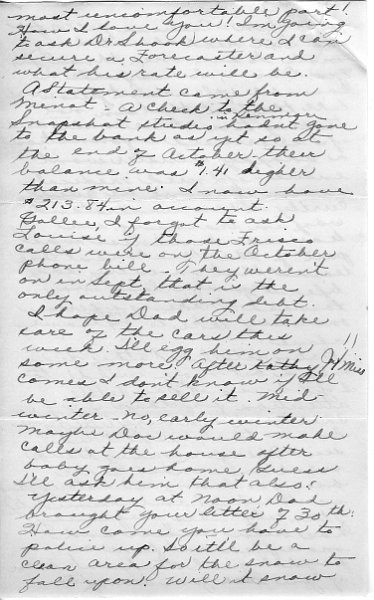 most uncomfortable part!
How I love you! I'm going
to ask Dr Shook where I can
secure a Forecaster and
what his rate will be.
A Statement came from
Menot. A check to the
Snapshot studio in Kenmore hadn't gone
to the bank as yet so at
the end of October their
balance was $1.41 higher
than mine. I now have
$213.84 in account.
Gollee, I forgot to ask
Louise if those Frisco
calls were on the October
phone bill. They weren't
on in Sept. that is the
only outstanding debt.
I hope Dad will take
care of the cars this
week. I'll egg him on
some more. After Kathy
comes I don't know if I'll
be able to sell it. Mid
winter - no, early winter.
Maybe Doc would make
calls at the house after
baby goes home. Guess
I'll ask him that also!
Yesterday at noon Dad
brought your letter of 30th.
How come you have to
police up. So it'll be a
clean area for the snow to
fall upon? Will it snow